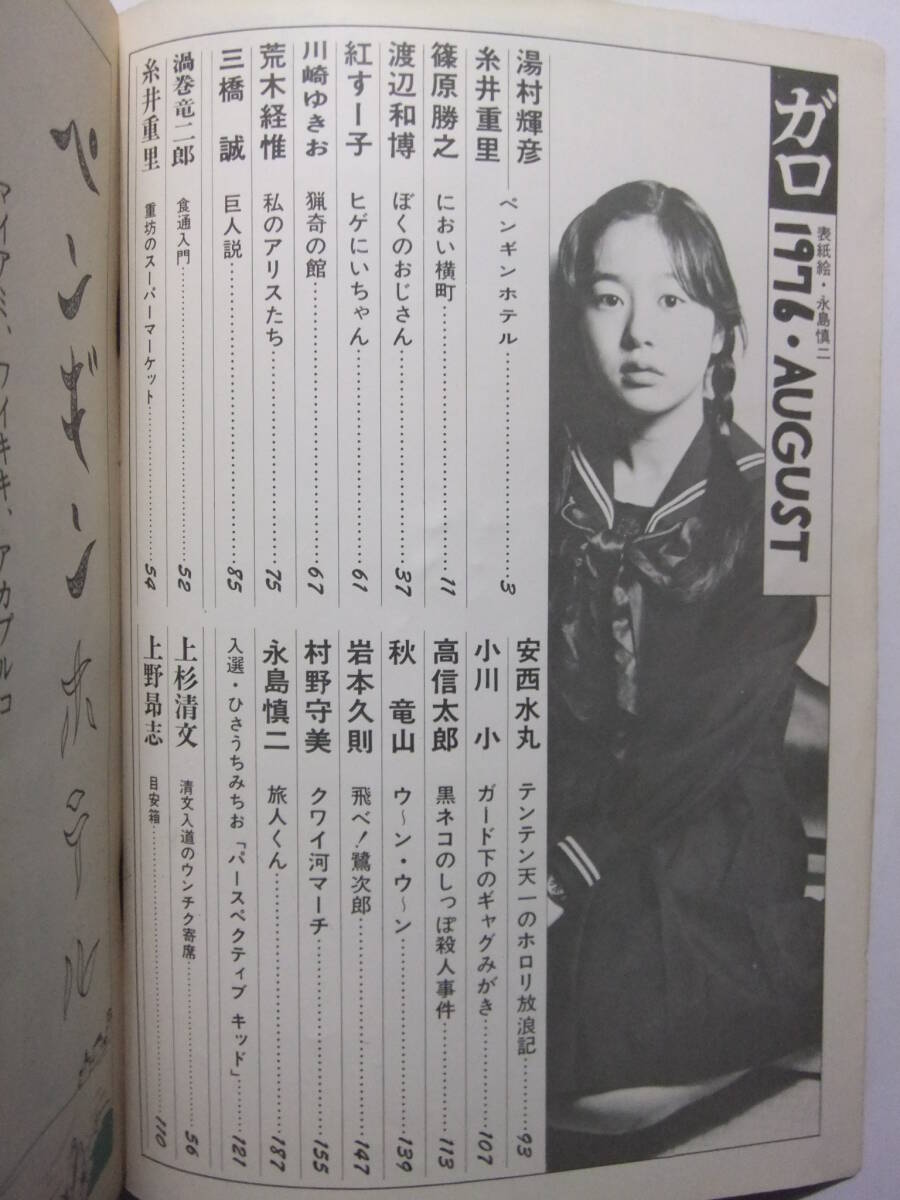 ガロ
1976・AUGUST
表紙絵・永島慎二
湯村輝彦
糸井重里 ペンギンホテル 3
篠原勝之 におい横町 11
渡辺和博 ぼくのおじさん 37
紅すー子 ヒゲにいちゃん 61
川崎ゆきお 猟奇の館 67
荒木経惟 私のアリスたち 75
三橋 誠 巨人説 85
渦巻竜二郎 食通入門 52
糸井重里 重坊のスーパーマーケット 54
安西水丸 テンテン天一のホロリ放浪記 93
小川 小 ガード下のギャグみがき 107
高信太郎 黒ネコのしっぽ殺人事件 113
秋 竜山 ウ〜ン・ウ〜ン 139
岩本久則 飛べ!鷺次郎 147
村野守美 クワイ河マーチ 155
永島慎二 旅人くん 187
入選・ひさうちみちお「パースペクティブ キッド」 121
上杉清文 清文入道のウンチク寄席 56
上野昂志 目安箱 110
ぺんぎんホテル
マイアミ、ワイキキ、アカプルコ